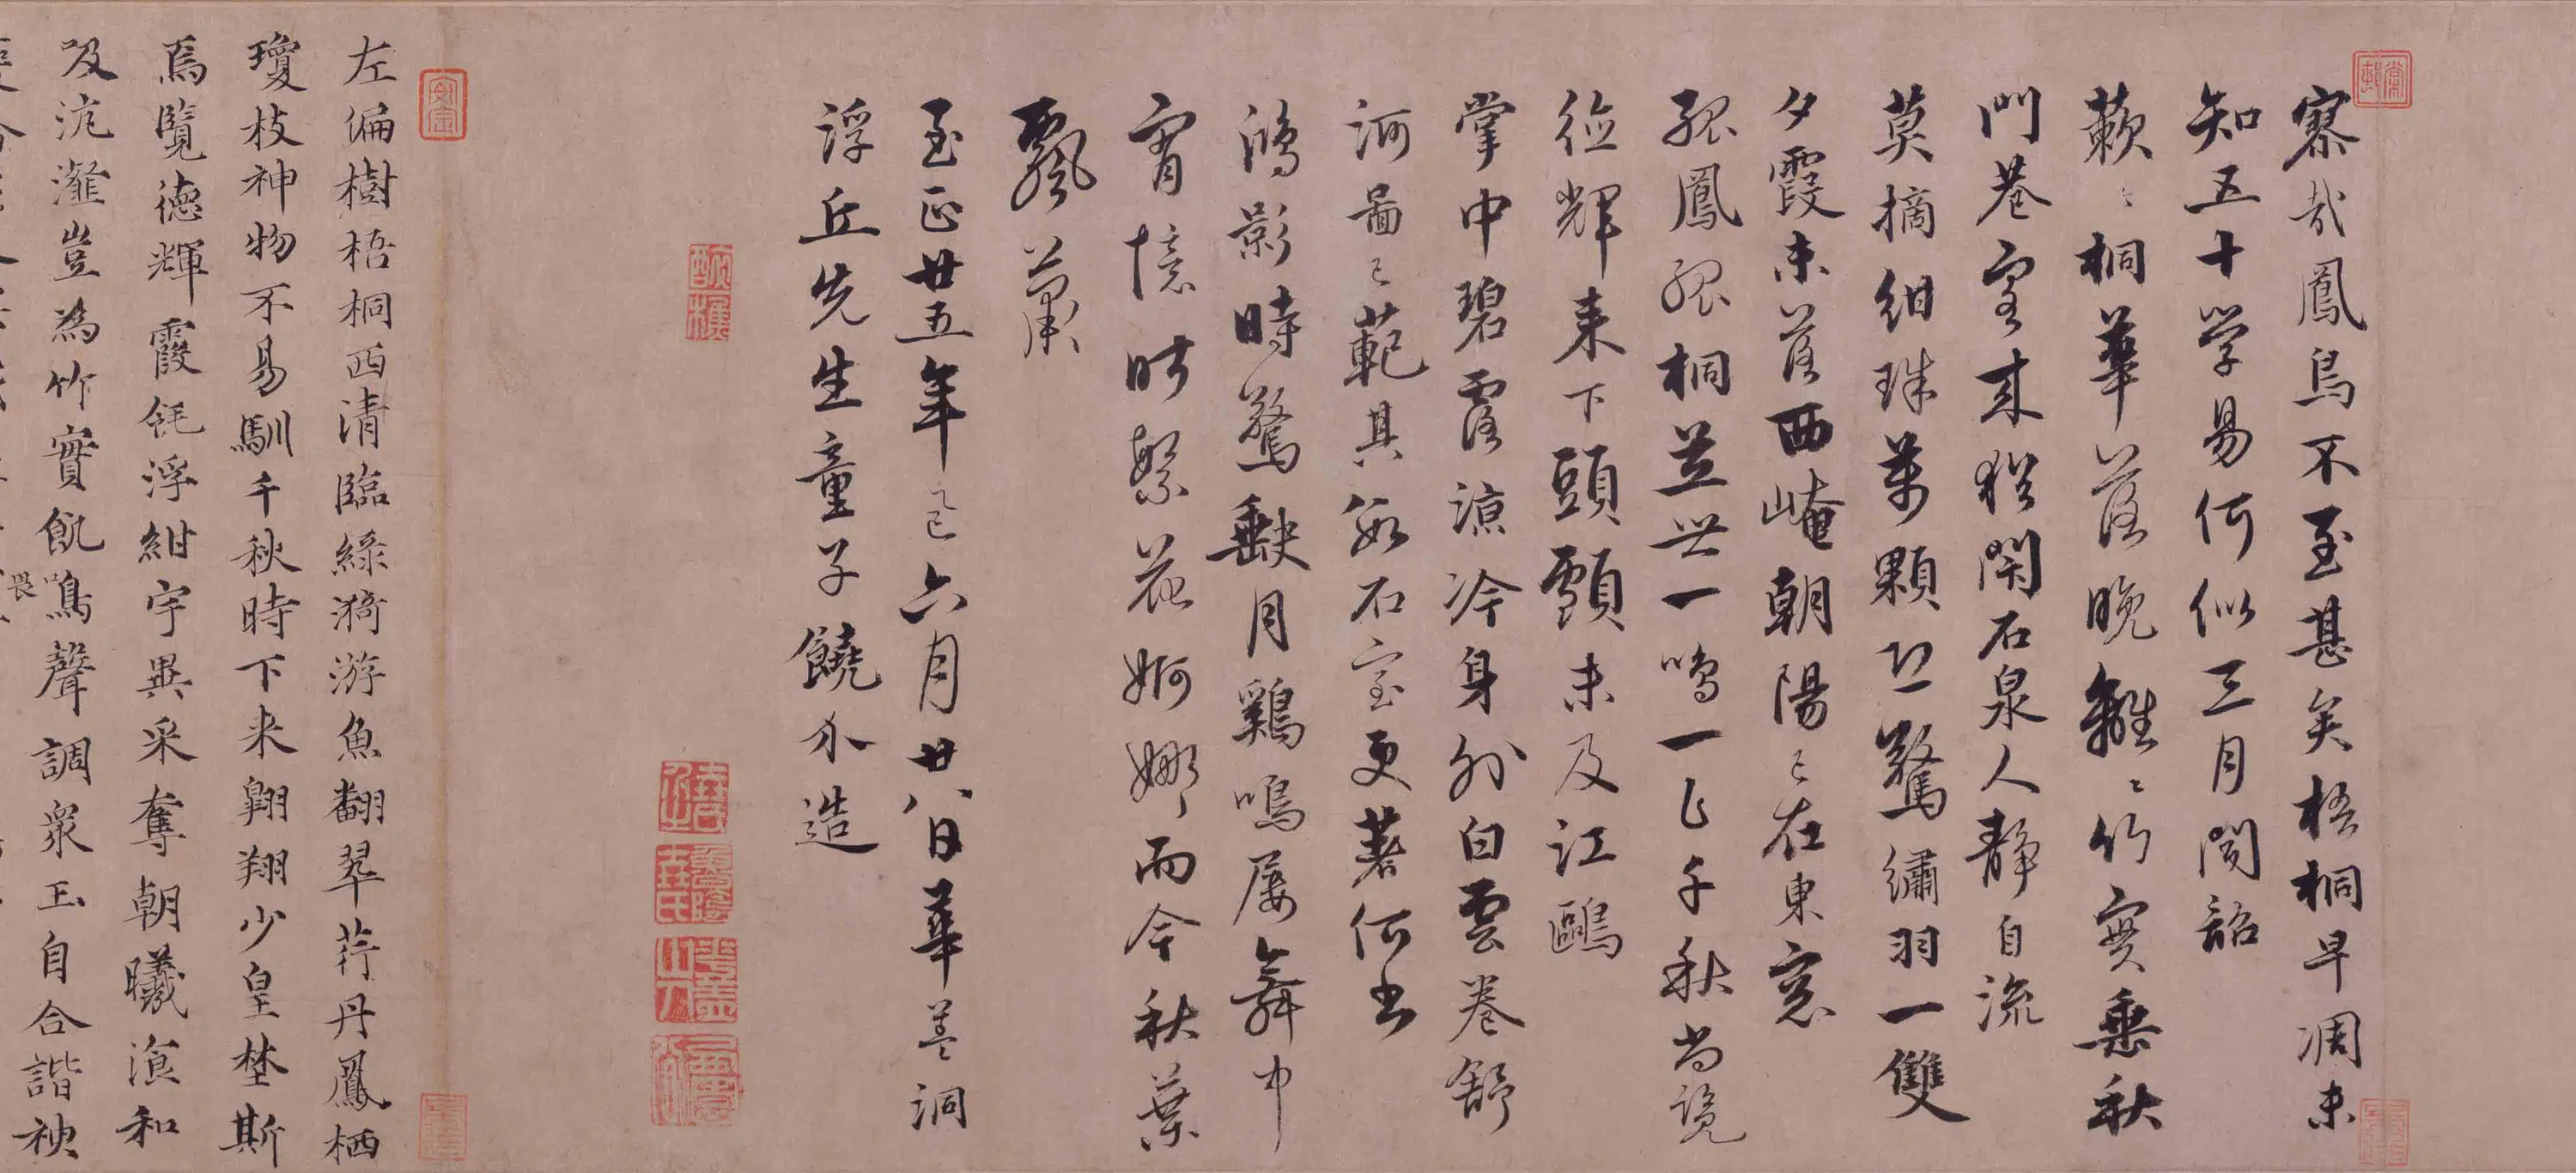 寥哉鳳鳥不至甚矣梧桐早凋未
知五十學易何似三月聞韶
蔌〻桐華落晚離〻竹實垂秋
門巷客來猶閑石泉人靜自流
莫摘紺珠萬顆恐驚繡羽一雙
夕霞未落西崦朝陽已在東窓
孤鳳孤桐並世一鳴一止千秋尚覽
德輝來下頭顱未及江鷗
掌中碧露涼冷身外白雲卷舒
河圖已範其文石室更著何書
鴻影時驚缺月鷄鳴屢舞中
宵憶昨繁花婀娜而今秋葉
飄蕭
至正廿五年乙巳六月廿八日華蓋洞
浮丘先生童子饒介造
左偏樹梧桐西清臨綠漪游魚翻翠荇丹鳳栖
瓊枝神物不易馴千秋時下來翱翔少皇埜斯
焉覽德輝霞毳浮紺宇異采奪朝曦飡和
吸沆瀣豈為竹實飢鳴聲調衆玉自合諧
畏